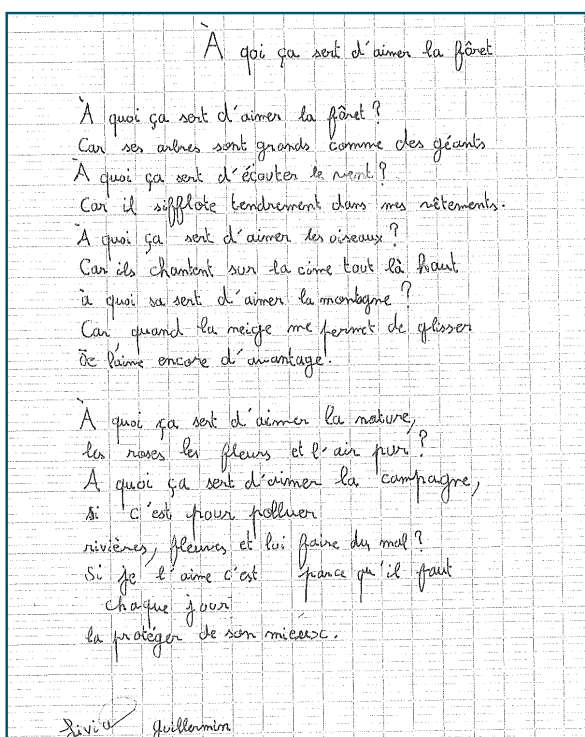 À qoi ça sert d'aimer la fôret
À quoi ça sert d'aimer la fôret ?
Car ses arbres sont grands comme des géants
À quoi ça sert d'écouter le vent ?
Car il sifflote tendrement dans mes vêtements.
À quoi ça sert d'aimer les oiseaux ?
Car ils chantent sur la cime tout là haut
à quoi sa sert d'aimer la montagne ?
Car quand la neige me permet de glisser
Je l'aime encore d'avantage.
À quoi ça sert d'aimer la nature,
les roses les fleurs et l'air pur ?
À quoi ça sert d'aimer la campagne,
si c'est pour polluer
rivières, fleuves et lui faire du mal ?
Si je l'aime c'est parce qu'il faut
chaque jour
la protéger de son mieux.
Livia Guillermin